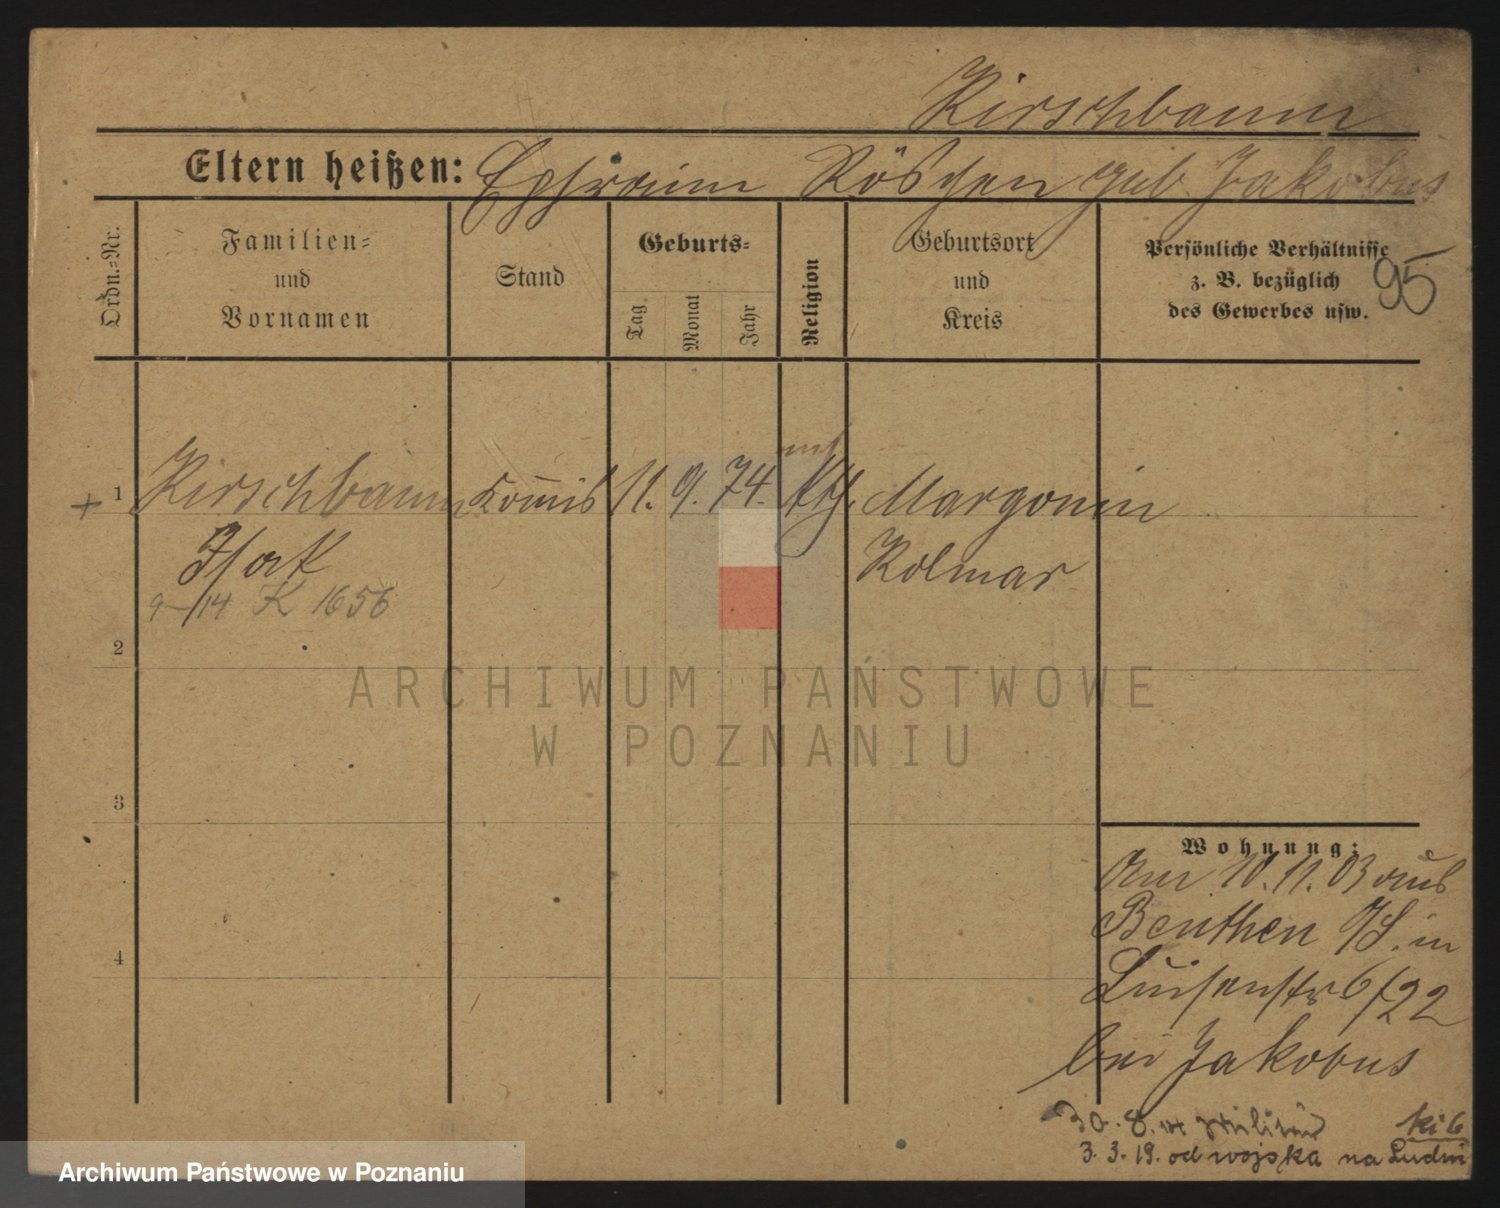 Kirschbaum
Eltern heißen: Ephraim Röschen geb. Jakobus
Ordn.=Nr.
Familien=
und
Vornamen
Stand
Geburts=
Tag
Monat
Jahr
Religion
Geburtsort
und
Kreis
Persönliche Verhältnisse
z. B. bezüglich
des Gewerbes usw.
95
+ 1 Kirschbaum Kommis 11. 9. 74. Margonin
Isak Kolmar
9-/14 K 1656
2
ARCHIWUM PAŃSTWOWE
W POZNANIU
3
4
Wohnung:
Am 10. 11. 03 aus
Beuthen O/S. in
Luisenstr 6/22
bei Jakobus
30. 8. 14 Militär
ki 6
3. 3. 19. od wojska na
Archiwum Państwowe w Poznaniu